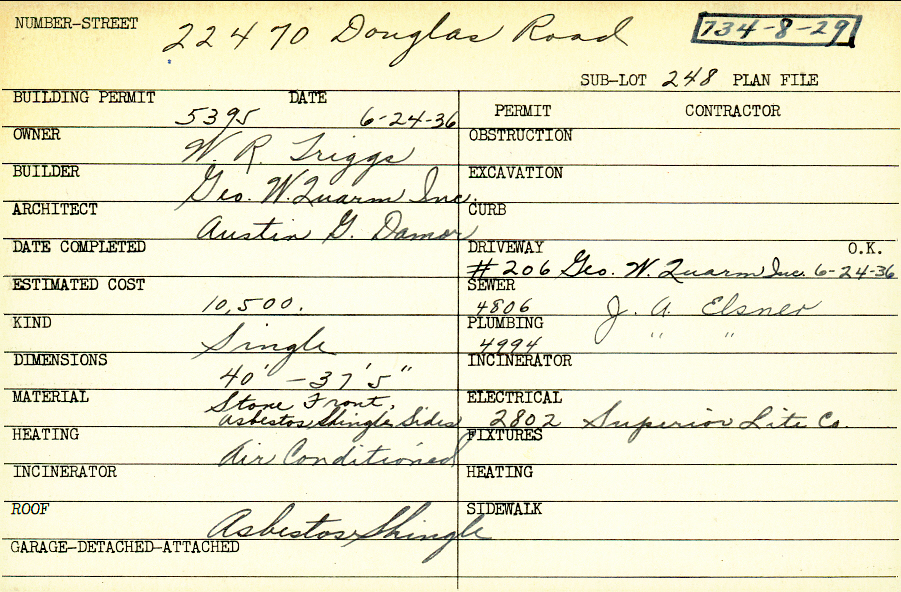 NUMBER-STREET 22470 Douglas Road 734-8-29
SUB-LOT 248 PLAN FILE
BUILDING PERMIT 5395 DATE 6-24-36
PERMIT CONTRACTOR
OWNER W. R. Triggs
OBSTRUCTION
BUILDER Geo. W. Quarm Inc.
EXCAVATION
ARCHITECT Austin G. Damon
CURB
DATE COMPLETED
DRIVEWAY O.K.
# 206 Geo. W. Quarm Inc. 6-24-36
ESTIMATED COST 10,500.
SEWER 4806 J. A. Elsner
KIND Single
PLUMBING 4994 " "
DIMENSIONS 40' - 37' 5"
INCINERATOR
MATERIAL Stone Front,
Asbestos Shingle Sides
ELECTRICAL 2802 Superior Lite Co.
HEATING Air Conditioned
FIXTURES
INCINERATOR
HEATING
ROOF Asbestos Shingle
SIDEWALK
GARAGE-DETACHED-ATTACHED